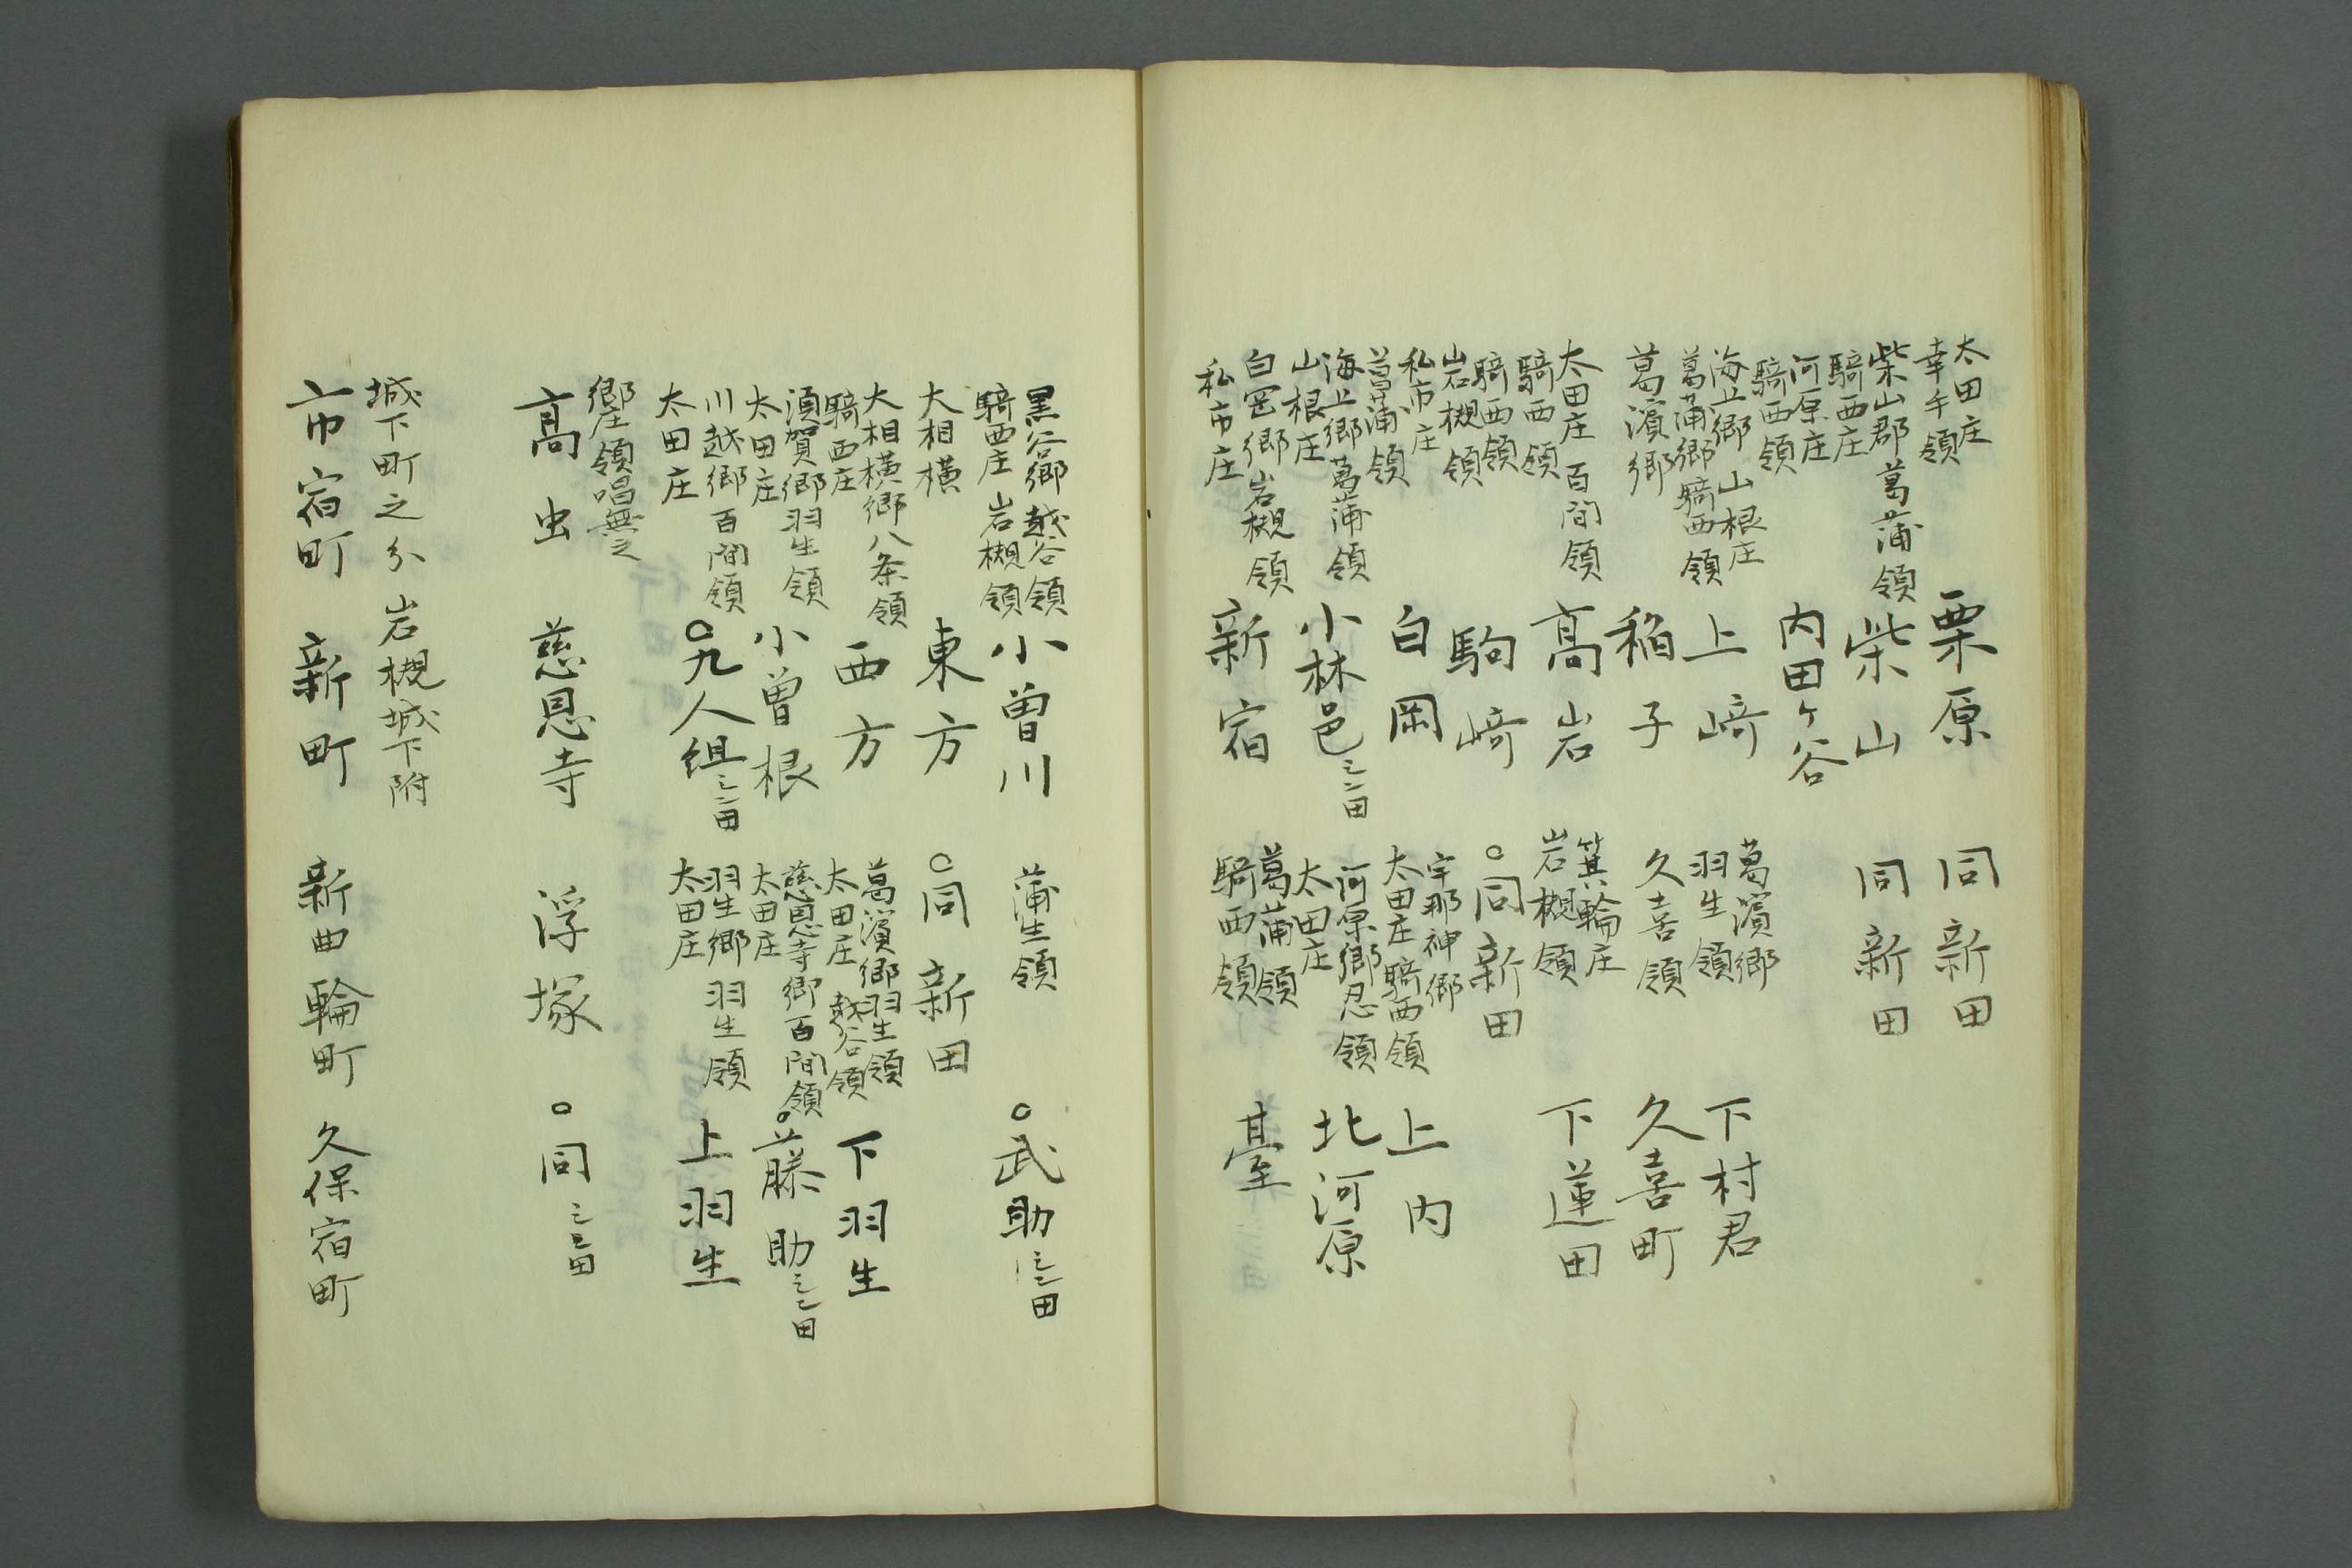 太田庄
幸手領
栗原
同新田
柴山郡葛蒲領
騎西庄
柴山
同新田
河原庄
騎西領
内田ヶ谷
海上郷山根庄
葛蒲郷騎西領
上﨑
葛濱郷
羽生領
下村君
葛濱郷
稲子
久喜領
久喜町
太田庄百間領
騎西領
髙岩
箕輪庄
岩槻領
下蓮田
騎西領
岩槻領
駒﨑
〇同新田
私市庄
菖蒲領
白岡
宇那神郷
太田庄騎西領
上内
海上郷葛蒲領
山根庄
小林邑
河原郷忍領
太田庄
北河原
白岡郷岩槻領
私市庄
新宿
葛蒲領
騎西領
臺
黒谷郷越谷領
騎西庄岩槻領
小曽川
蒲生領
〇武助
大相横
東方
〇同新田
大相横郷八条領
騎西庄
西方
葛濱郷羽生領
太田庄越谷領
下羽生
須賀郷羽生領
太田庄
小曽根
慈恩寺郷百間領
太田庄
〇藤助
川越郷百間領
太田庄
〇九人組
羽生郷羽生領
太田庄
上羽生
郷庄領唱無之
髙虫
慈恩寺
浮塚
〇同
城下町之分岩槻城下附
市宿町
新町
新曲輪町
久保宿町